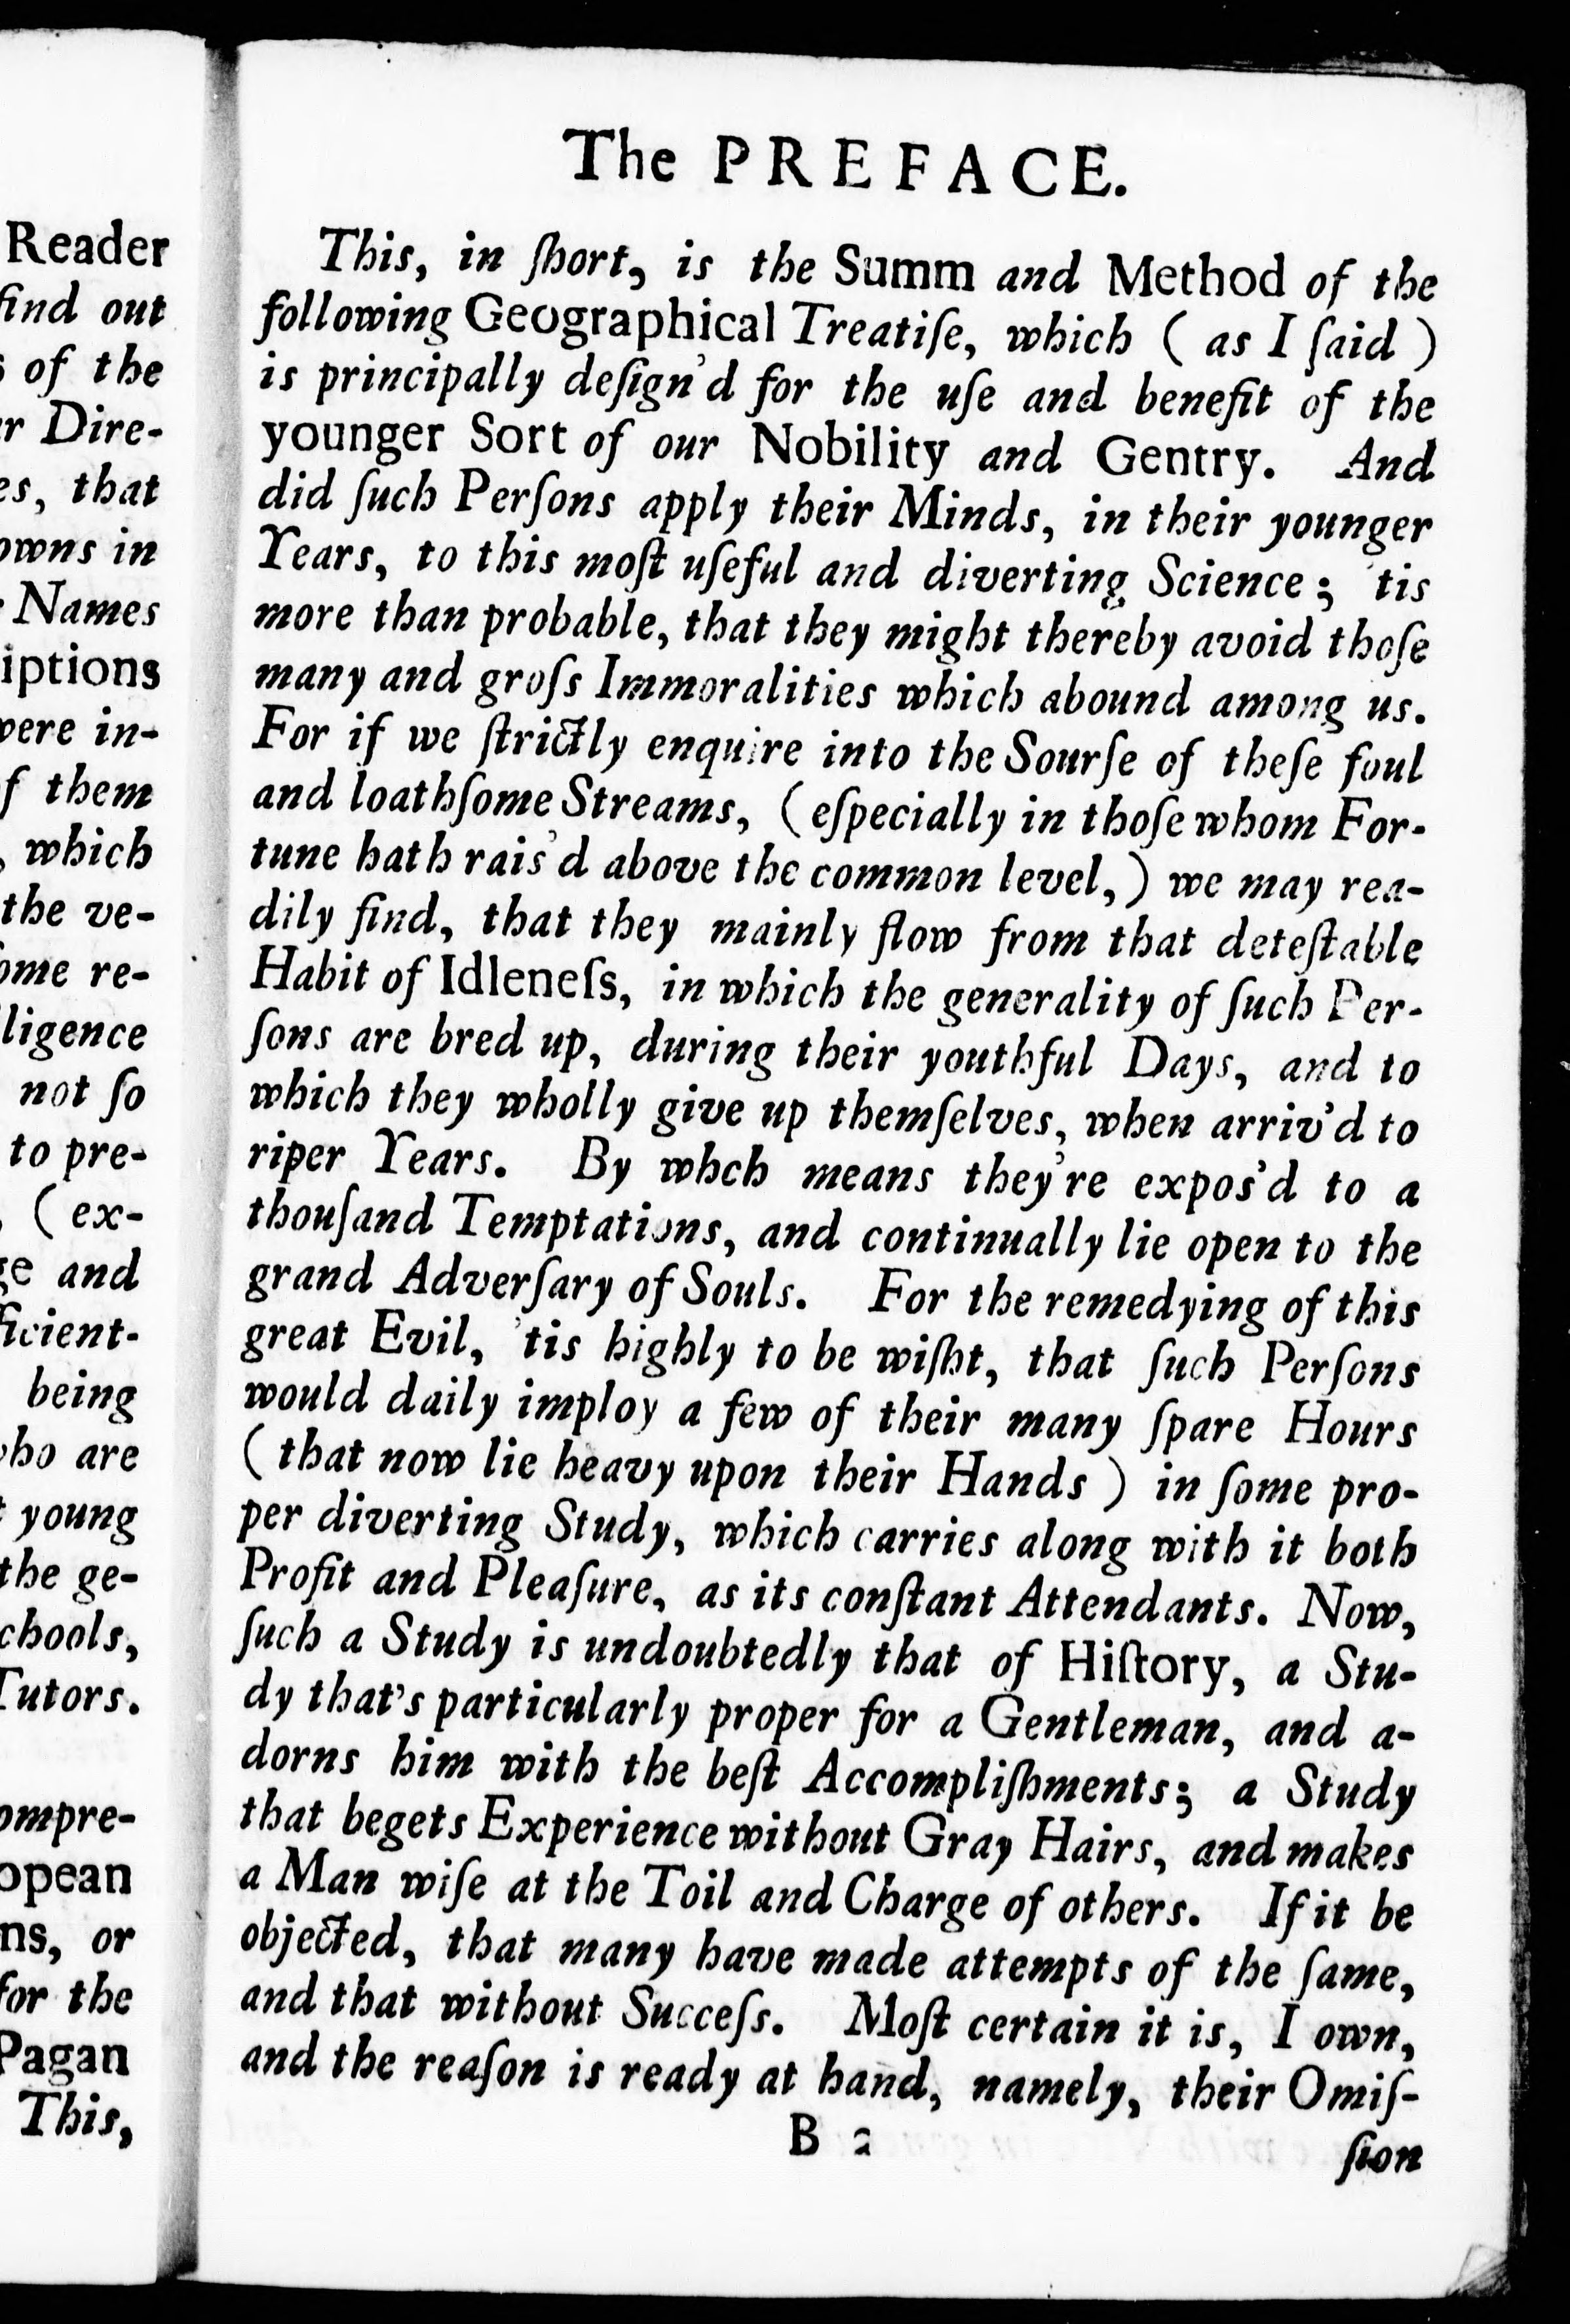 Reader
find out
of the
Dire-
that
in
Names
in-
them
which
the ve-
re-
not ſo
to pre-
( ex-
and
being
are
young
the ge-
Tutors.
or
for the
Pagan
This,
The PREFACE.
This, in ſhort, is the Summ and Method of the
following Geographical Treatiſe, which ( as I ſaid )
is principally deſign'd for the uſe and benefit of the
younger Sort of our Nobility and Gentry. And
did ſuch Perſons apply their Minds, in their younger
Years, to this moſt uſeful and diverting Science; 'tis
more than probable, that they might thereby avoid thoſe
many and groſs Immoralities which abound among us.
For if we ſtrictly enquire into the Sourſe of theſe foul
and loathſome Streams, ( eſpecially in thoſe whom For-
tune hath rais'd above the common level, ) we may rea-
dily find, that they mainly flow from that deteſtable
Habit of Idleneſs, in which the generality of ſuch Per-
ſons are bred up, during their youthful Days, and to
which they wholly give up themſelves, when arriv'd to
riper Years. By whch means they're expos'd to a
thouſand Temptations, and continually lie open to the
grand Adverſary of Souls. For the remedying of this
great Evil, 'tis highly to be wiſht, that ſuch Perſons
would daily imploy a few of their many ſpare Hours
( that now lie heavy upon their Hands ) in ſome pro-
per diverting Study, which carries along with it both
Profit and Pleaſure, as its conſtant Attendants. Now,
ſuch a Study is undoubtedly that of Hiſtory, a Stu-
dy that's particularly proper for a Gentleman, and a-
dorns him with the beſt Accompliſhments; a Study
that begets Experience without Gray Hairs, and makes
a Man wiſe at the Toil and Charge of others. If it be
objected, that many have made attempts of the ſame,
and that without Succeſs. Moſt certain it is, I own,
and the reaſon is ready at hand, namely, their Omiſ-
B 2
ſion